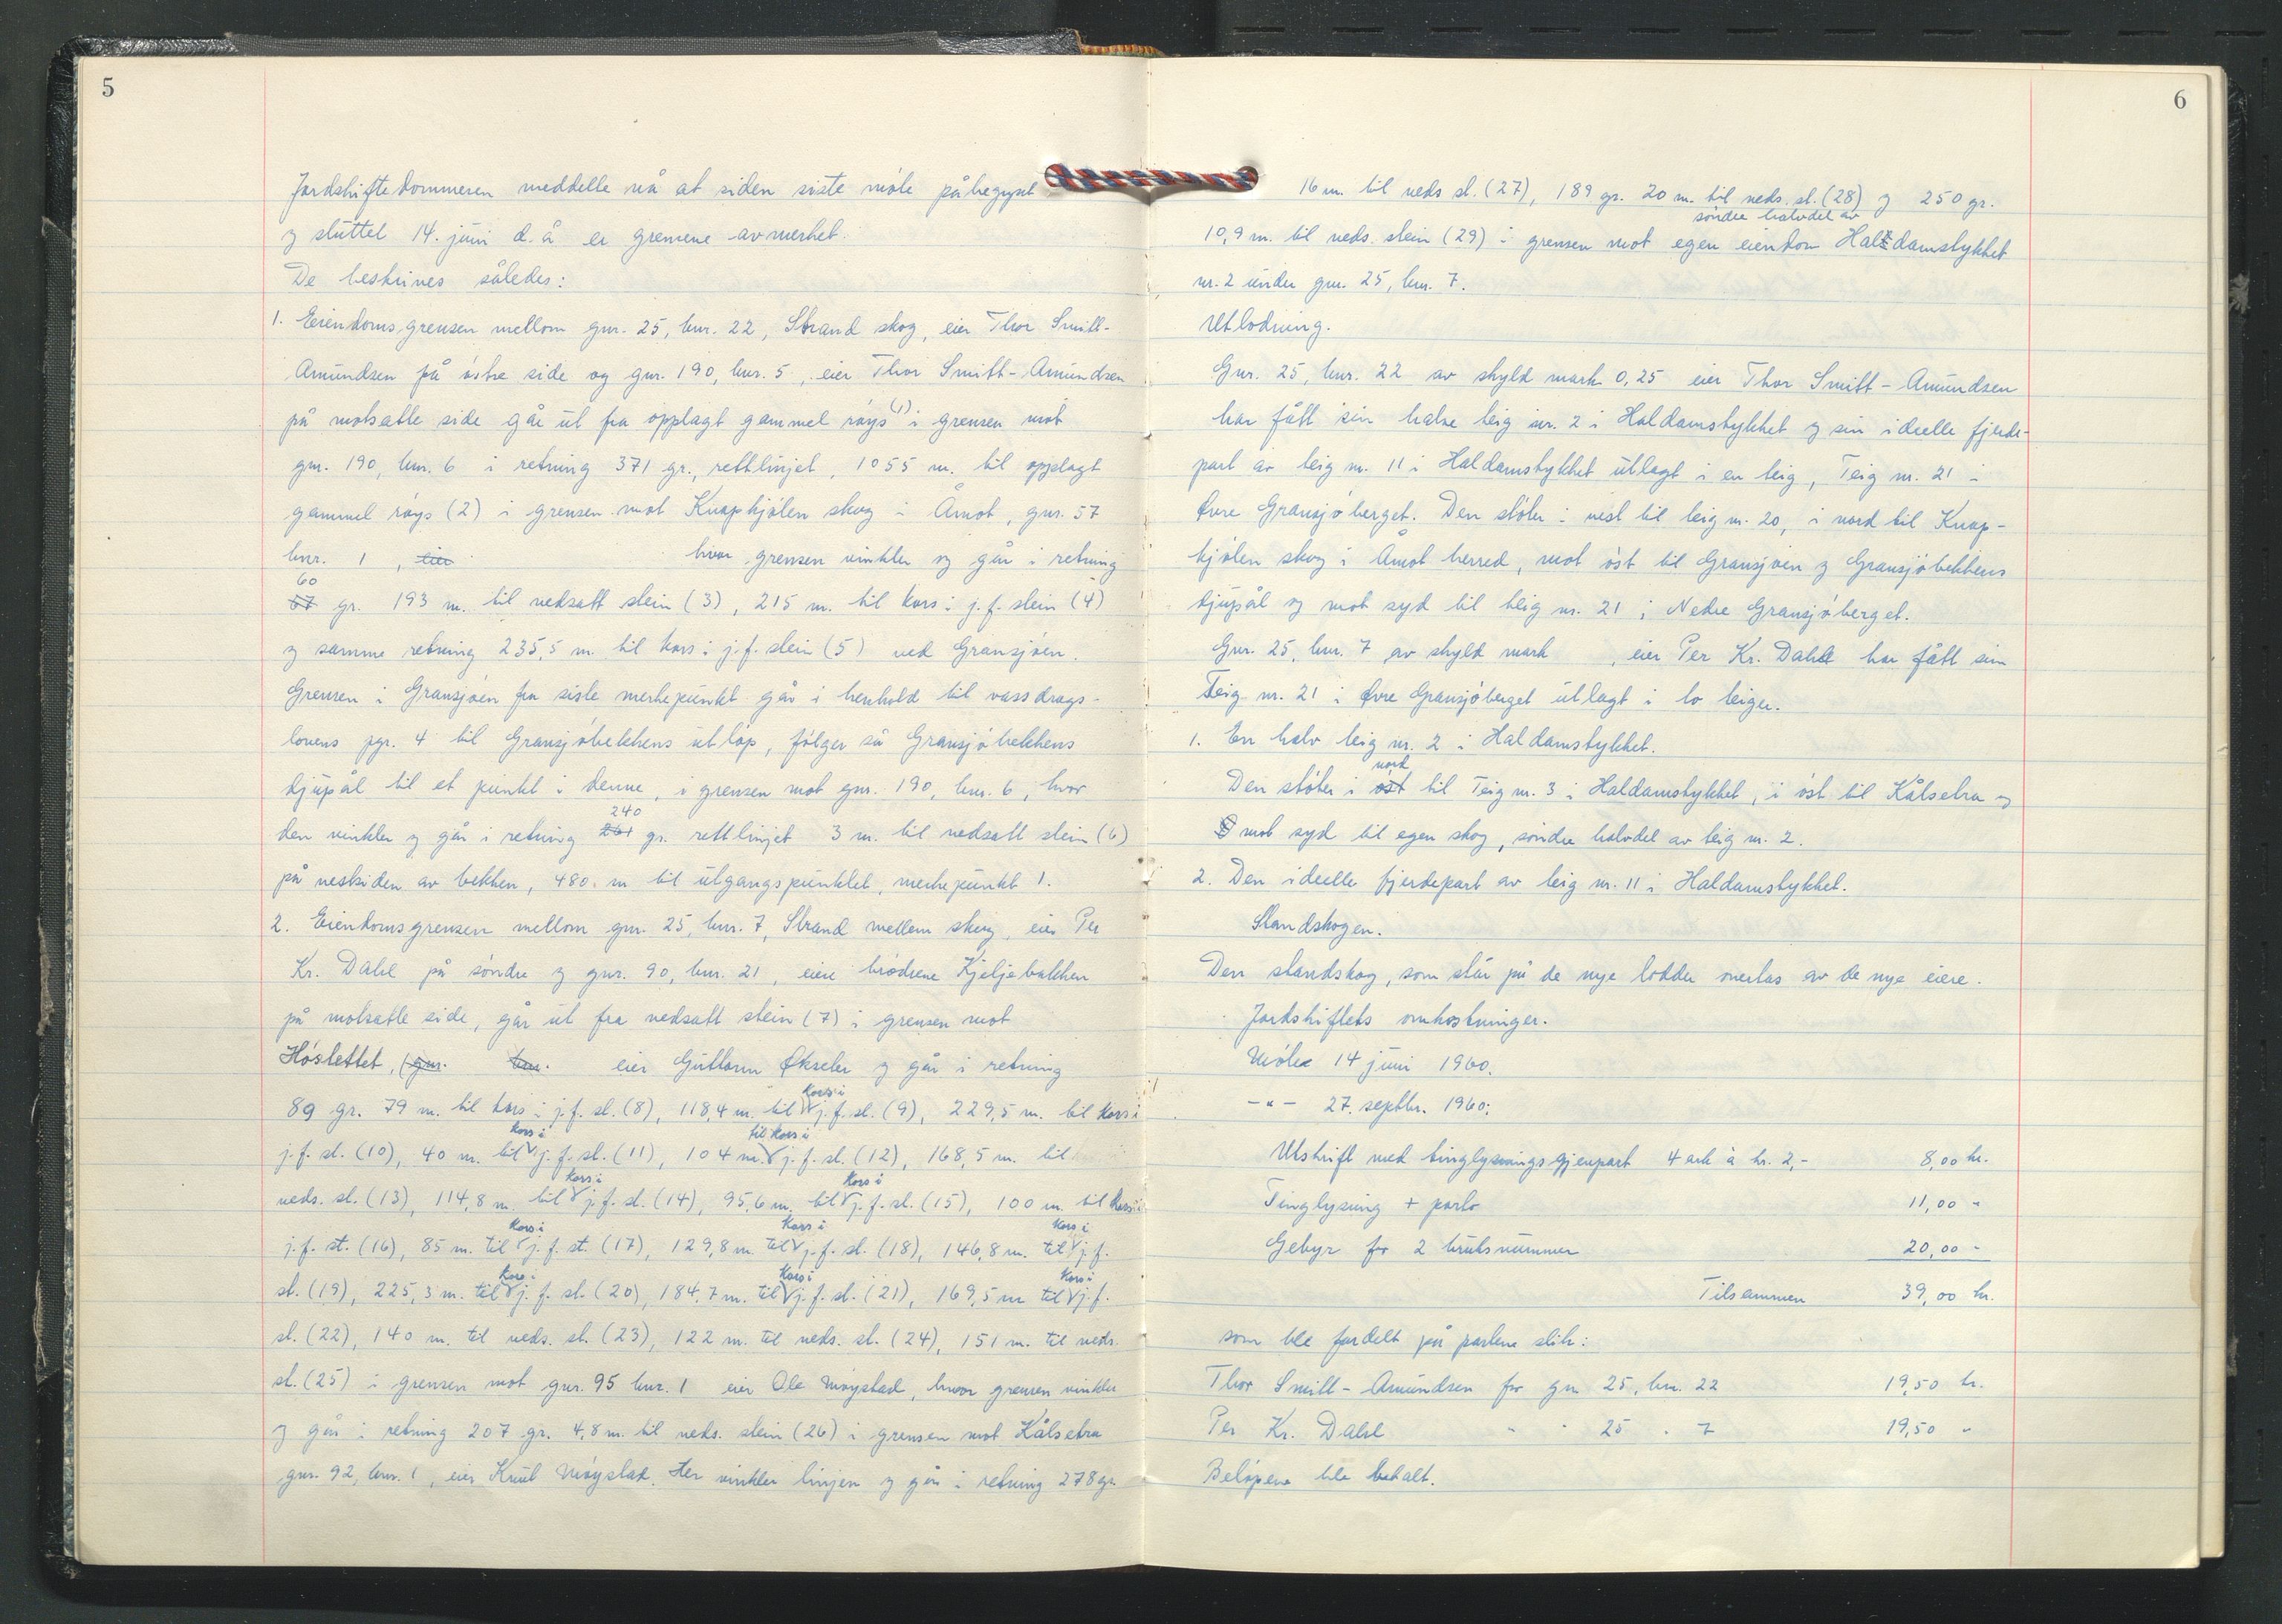 5
Jordskiftedommeren meddelte nå at siden siste møte påbegynt
og sluttet 14. juni d.å er grensene avmerket.
De beskrives således:
1. Eiendomsgrensen mellom gnr. 25, bnr. 22, Strand skog, eier Thor Smitt-
Amundsen på østre side og gnr. 190, bnr. 5, eier Thor Smitt-Amundsen
på motsatte side går ut fra opplagt gammel røys (1) i grensen mot
gnr. 190, bnr. 6 i retning 371 gr., rettlinjet, 1055 m. til opplagt
gammel røys (2) i grensen mot Knapkjølen skog i Åmot, gnr. 57
bnr. 1, eier hvor grensen vinkler og går i retning
60
67 gr. 193 m. til nedsatt stein (3), 215 m. til kors i j.f. stein (4)
og samme retning 235,5 m. til kors i j.f. stein (5) ved Gransjøen.
Grensen i Gransjøen fra siste merkepunkt går i henhold til vassdrags-
lovens pgr. 4 til Gransjøbekkens utløp, følger så Gransjøbekkens
djupål til et punkt i denne, i grensen mot gnr. 190, bnr. 6, hvor
240
den vinkler og går i retning 261 gr. rettlinjet 3 m. til nedsatt stein (6)
på vestsiden av bekken, 480 m til utgangspunktet, merkepunkt 1.
2. Eiendomsgrensen mellom gnr. 25, bnr. 7, Strand mellem skog, eier Per
Kr. Dahl på søndre og gnr. 90, bnr. 21, eiere brødrene Kjeljebakken
på motsatte side, går ut fra nedsatt stein (7) i grensen mot
Høslettet, (gnr. bnr. eier Guttorm Økseter og går i retning
kors i
89 gr. 79 m. til kors i j.f. st. (8), 118,4 m. til j.f. st. (9), 229,5 m. til kors i
kors i til kors i
j.f. st. (10), 40 m. til j.f. st. (11), 104 m. j.f. st. (12), 168,5 m. til
kors i kors i
neds. st. (13), 114,8 m. til j.f. st. (14), 95,6 m. til j.f. st. (15), 100 m. til kors i
kors i kors i kors i
j.f. st. (16), 85 m. til j.f. st. (17), 129,8 m. til j.f. st. (18), 146,8 m. til j.f.
kors i kors i kors i
st. (19), 225,3 m. til j.f. st. (20), 184,7 m. til j.f. st. (21), 169,5 m til j.f.
st. (22), 140 m. til neds. st. (23), 122 m. til neds. st. (24), 151 m. til neds.
st. (25) i grensen mot gnr. 95 bnr. 1 eier Ole Møystad, hvor grensen vinkler
og går i retning 207 gr. 4,8 m. til neds. stein (26) i grensen mot Kålsetra
gnr. 92, bnr. 1, eier Knut Møystad. Her vinkler linjen og går i retning 278 gr.
6
16 m. til neds st. (27), 189 gr. 20 m. til neds. st. (28) og 250 gr.
søndre halvdel av
10,9 m. til neds. stein (29) i grensen mot egen eiendom Haldamstykket
nr. 2 under gnr. 25, bnr. 7.
Utlodning.
Gnr. 25, bnr. 22 av skyld mark 0,25 eier Thor Smitt-Amundsen
har fått sin halve teig nr. 2 i Haldamstykket og sin ideelle fjerde-
part av teig nr. 11 i Haldamstykket utlagt i en teig, Teig nr. 21 i
Øvre Gransjøberget. Den støter i vest til teig nr. 20, i nord til Knap-
kjølen skog i Åmot herred, mot øst til Gransjøen og Gransjøbekkens
djupål og mot syd til teig nr. 21 i Nedre Gransjøberget.
Gnr. 25, bnr. 7 av skyld mark , eier Per Kr. Dahl har fått sin
Teig nr. 21 i Øvre Gransjøberget utlagt i to teiger.
1. En halv teig nr. 2 i Haldamstykket.
nord
Den støter i øst til Teig nr. 3 i Haldamstykket, i øst til Kålsetra og
mot syd til egen skog, søndre halvdel av teig nr. 2.
2. Den ideelle fjerdepart av teig nr. 11 i Haldamstykket.
Standskogen.
Den standskog, som står på de nye lodder overtas av de nye eiere.
Jordskiftets omkostninger.
Møte 14 juni 1960.
-"- 27. septbr. 1960:
Utskrift med tinglysningsgjenpart 4 ark à kr. 2,- 8,00 kr.
Tinglysing + porto 11,00 "
Gebyr for 2 bruksnummer 20,00 "
Tilsammen 39,00 kr.
som ble fordelt på partene slik:
Thor Smitt-Amundsen for gnr. 25, bnr. 22 19,50 kr.
Per Kr. Dahl " " 25 " 7 19,50 "
Beløpene ble betalt.